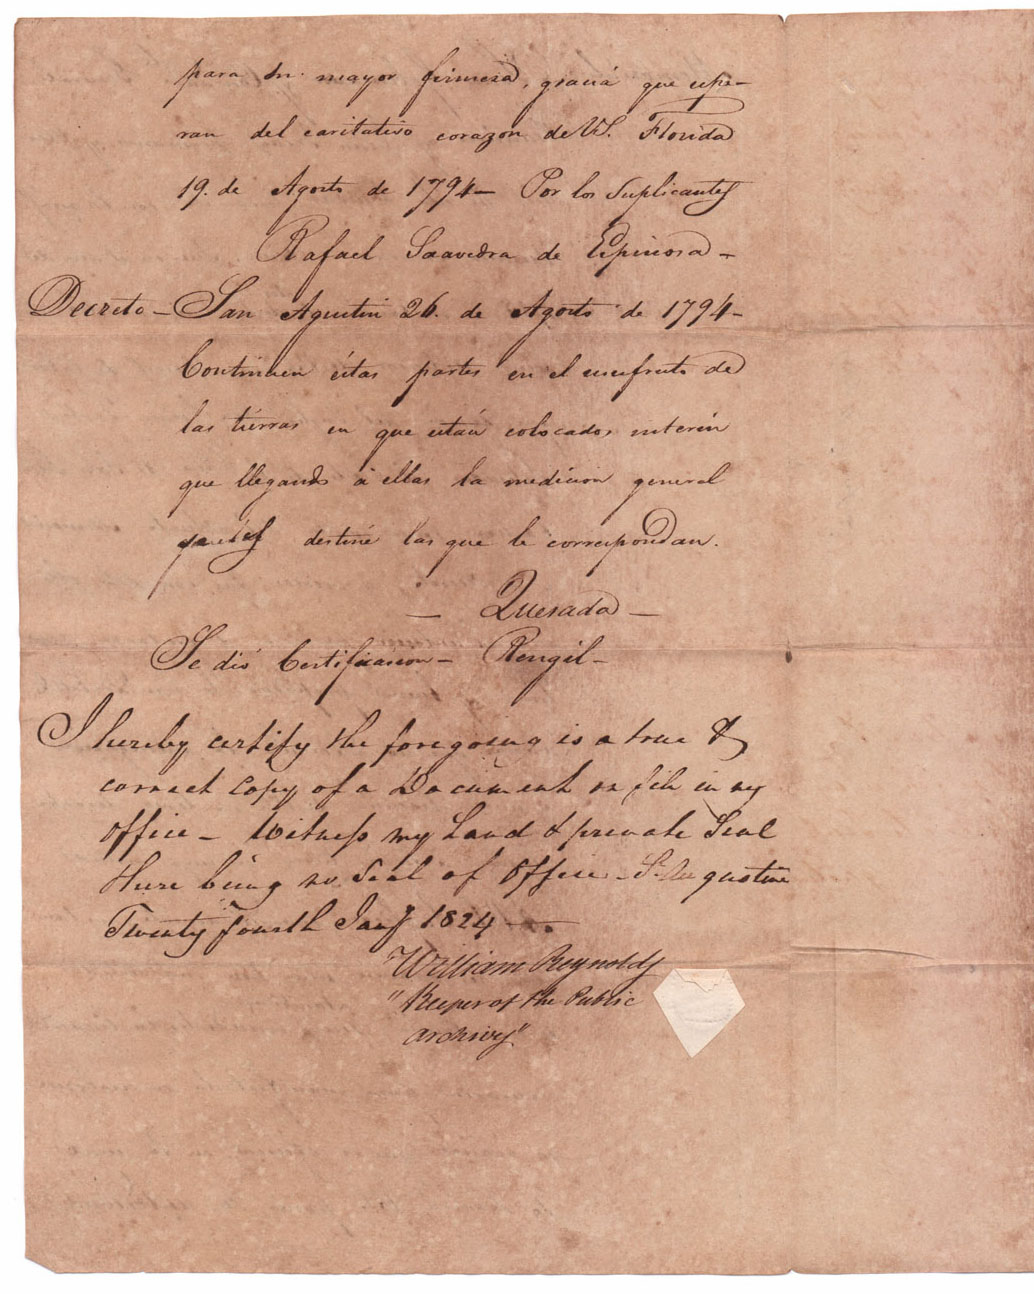 para su mayor firmeza, gracia que espe-
ran del caritativo corazon de VS. Florida
19. de Agosto de 1794— Por los Suplicantes
Rafael Saavedra de Espinosa—
Decreto— San Agustin 26. de Agosto de 1794—
Continuen éstas partes en el usufruto de
las tierras en que están colocados interin
que llegando à ellas la medicion general
destiné las que le correspondan.
— Quesada —
Se dió Certificacion— Rengil—
I hereby certify the foregoing is a true &
correct copy of a Document on file in my
office— Witness my hand & private Seal
there being no Seal of Office— St. Augustine
Twenty fourth Jany 1824—
William Reynolds
"Keeper of the Public
archives"